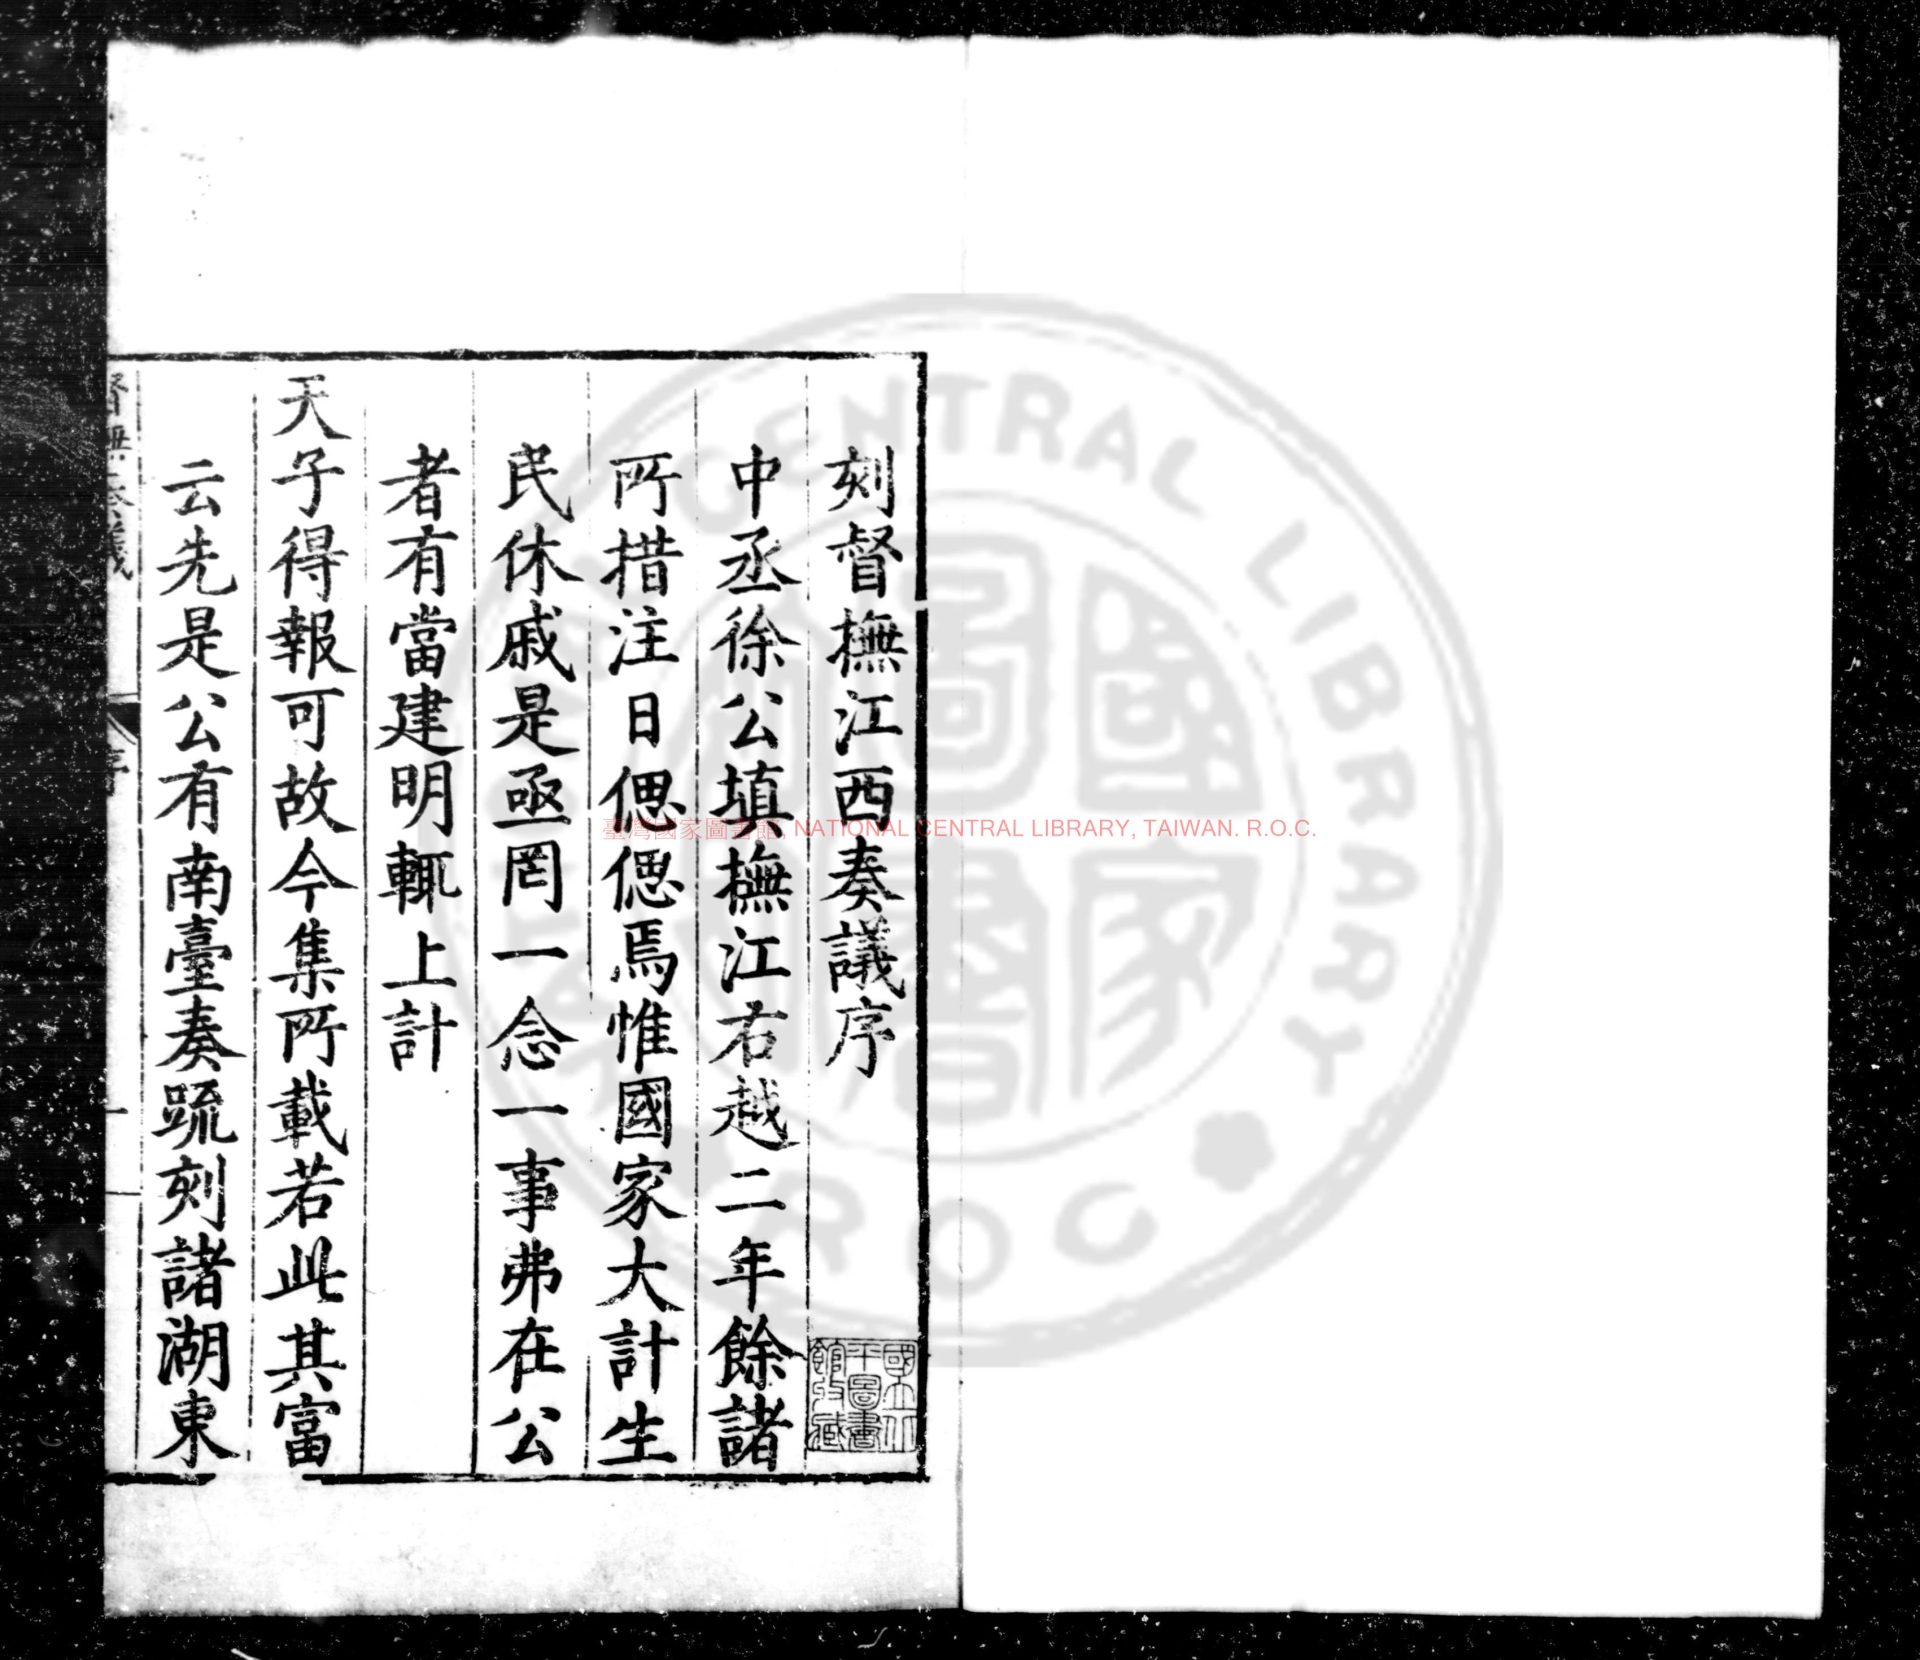 刻督撫江西奏議序
中丞徐公填撫江右越二年餘諸
所措注日偲偲焉惟國家大計生
民休戚是亟罔一念一事弗在公
者有當建明輒上計
天子得報可故今集所載若此其富
云先是公有南臺奏疏刻諸湖東
督撫奏議
序
一
國立北
平圖書
館收藏
臺灣國家圖書館, NATIONAL CENTRAL LIBRARY, TAIWAN. R.O.C.
CENTRAL LIBRARY
R O C
國家圖書